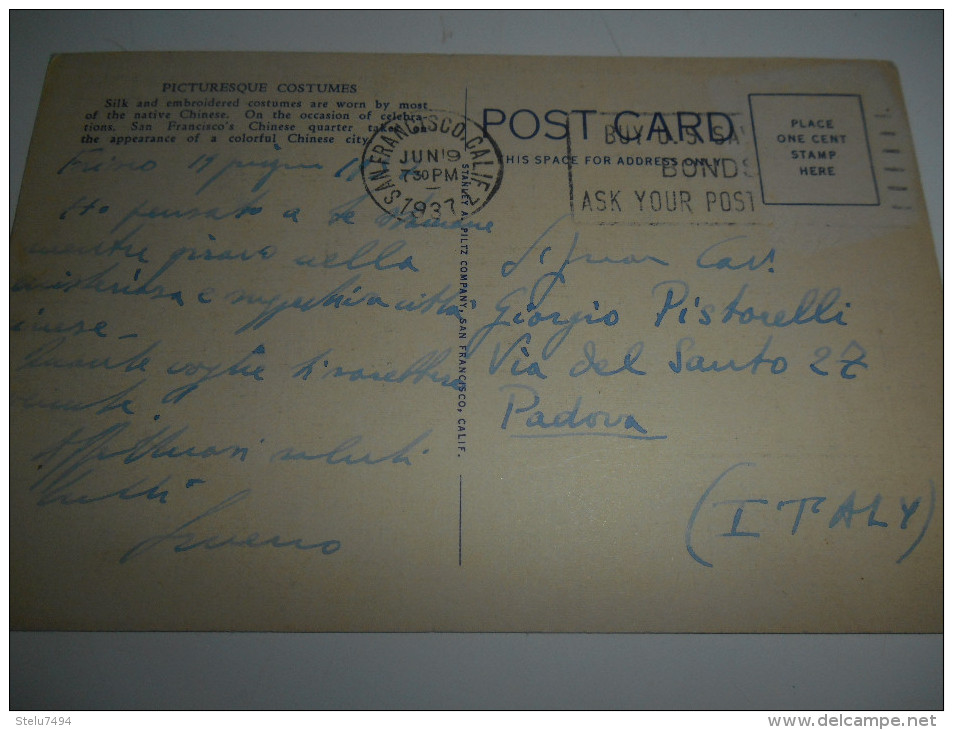 PICTURESQUE COSTUMES
Silk and embroidered costumes are worn by most
of the native Chinese. On the occasion of celebra-
tions, San Francisco's Chinese quarter takes on
the appearance of a colorful Chinese city.
19 giugno
Ho pensato a te
mentre giravo nella
misteriosa e città
cinese -
voglie ti
Affettuosi saluti
tutti
STANLEY A. PILTZ COMPANY, SAN FRANCISCO, CALIF.
SAN FRANCISCO, CALIF.
JUN 19
7 30 PM
1937
POST CARD
THIS SPACE FOR ADDRESS ONLY
BUY U.S. SAV
BONDS
ASK YOUR POST
PLACE
ONE CENT
STAMP
HERE
Signor Cav.
Giorgio Pistorelli
Via del Santo 27
Padova
(ITALY)
Stelu7494
www.delcampe.net